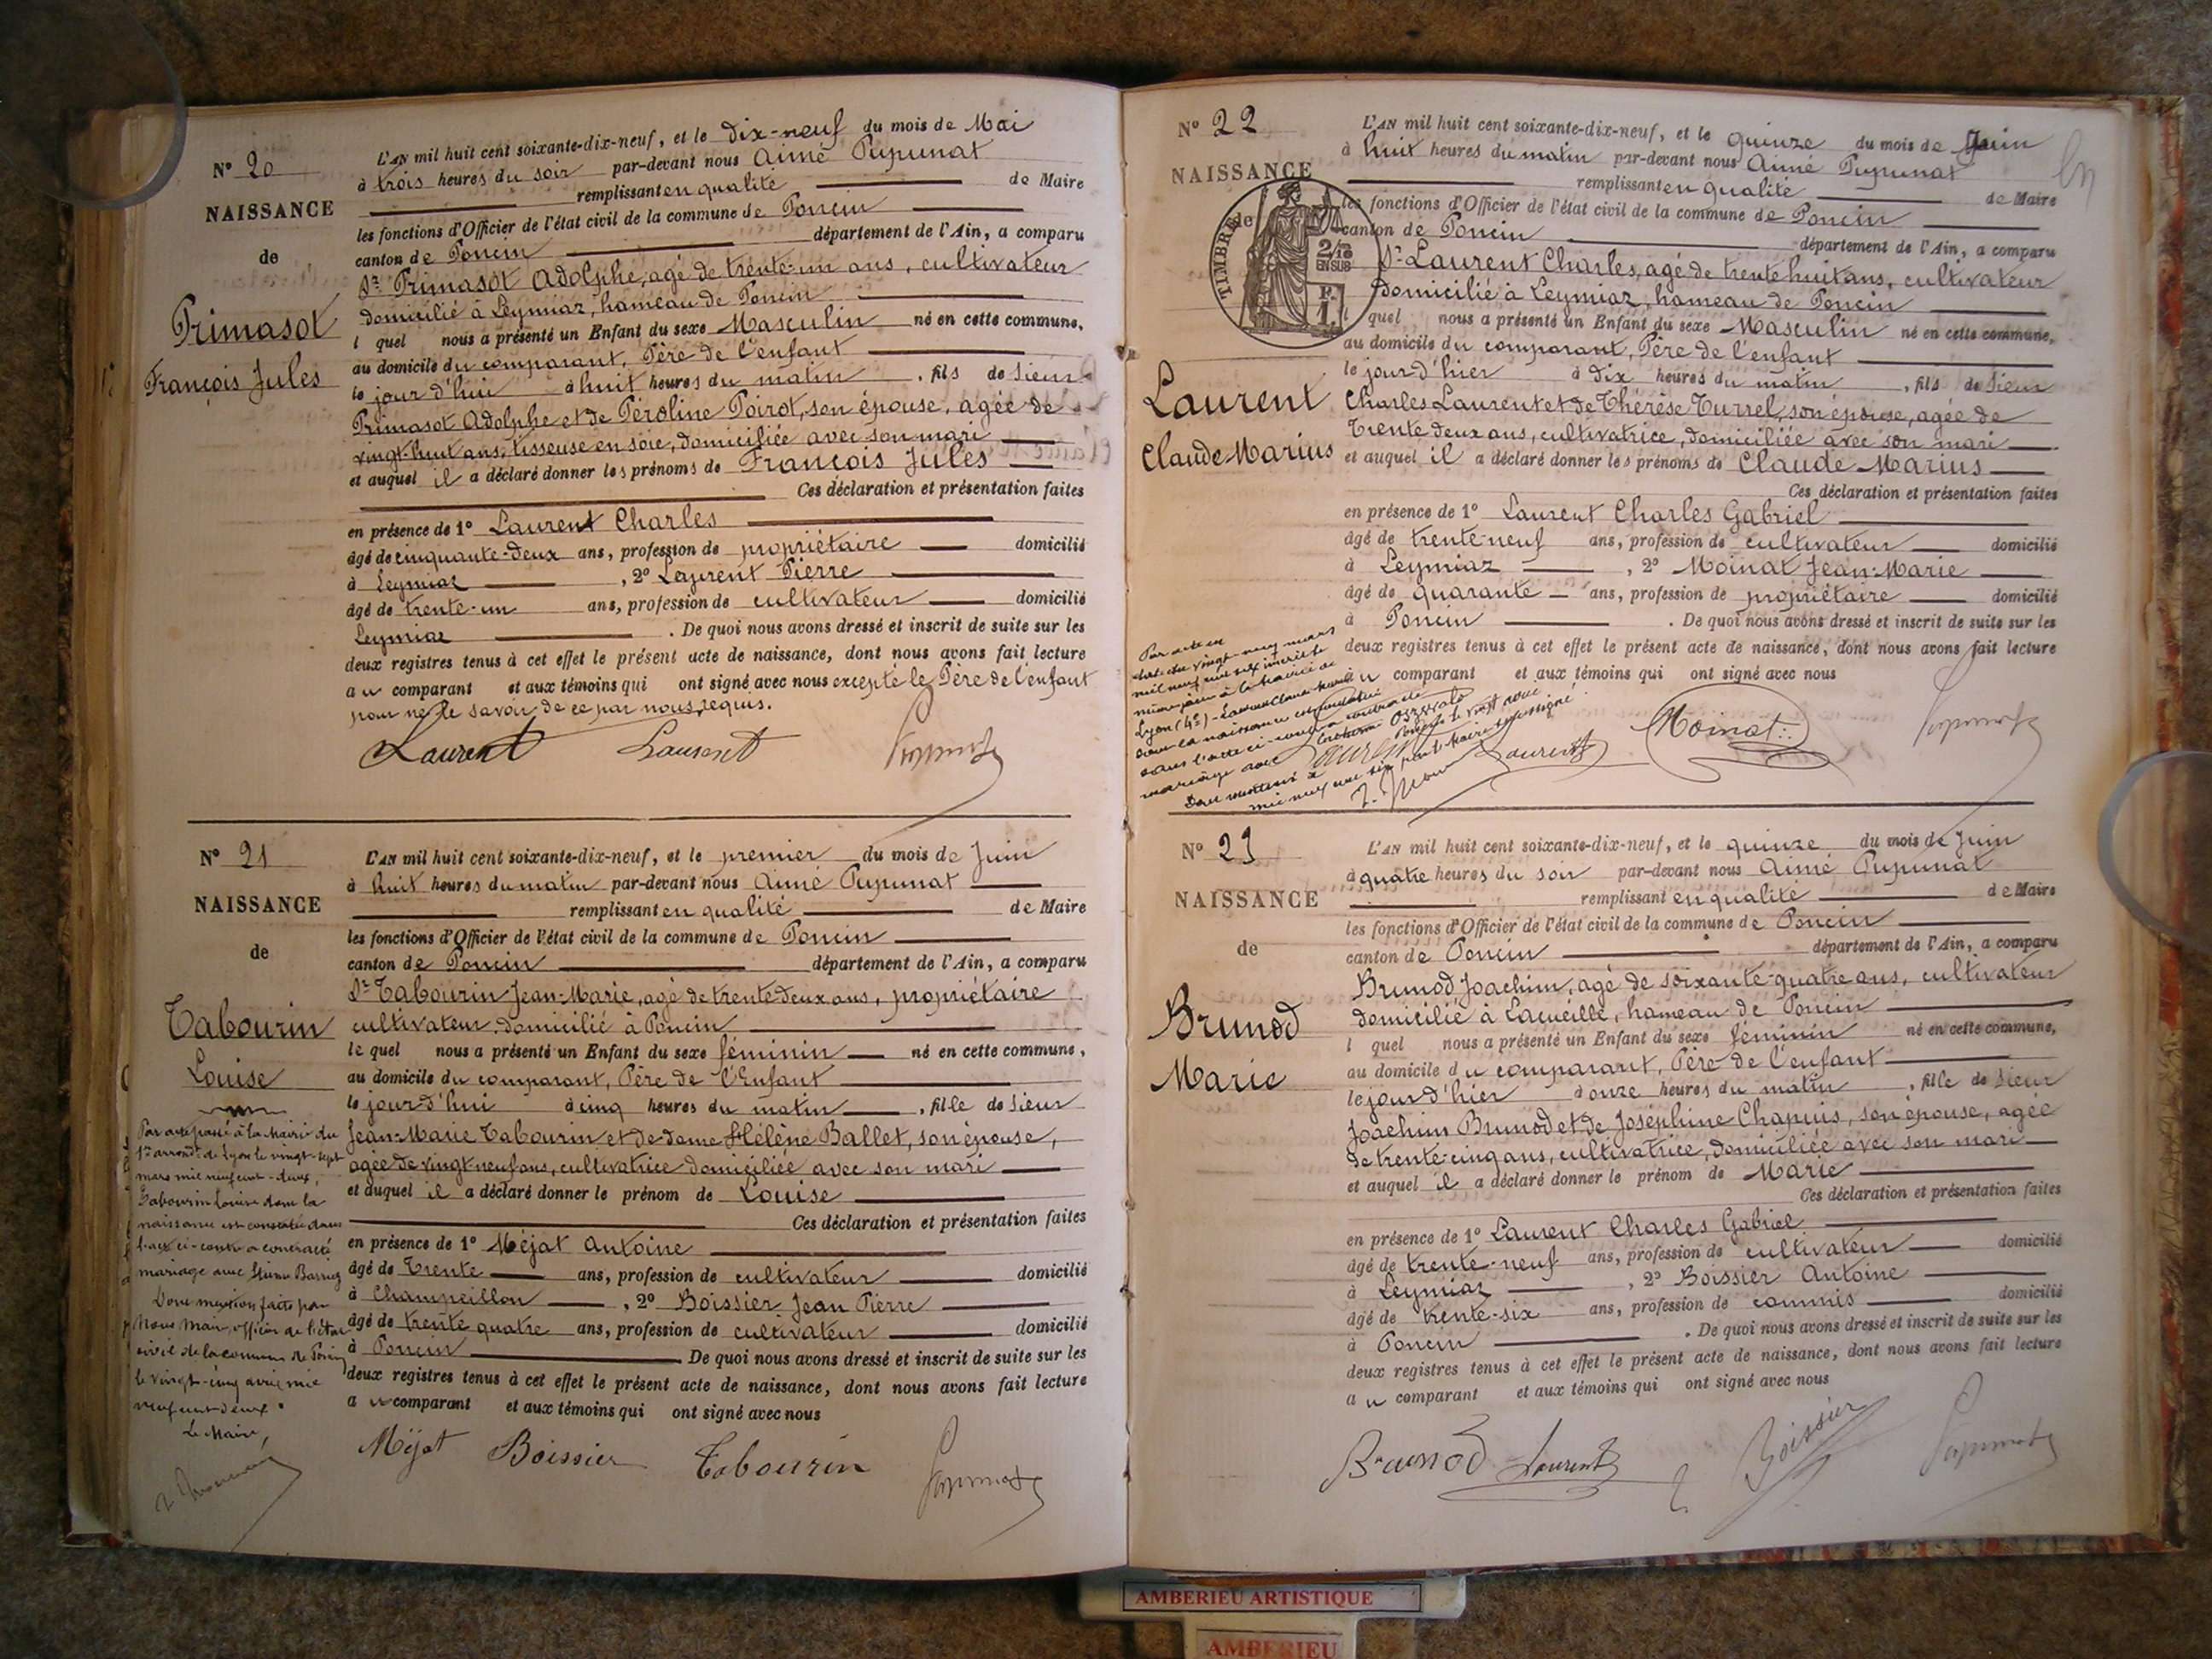 N° 20
NAISSANCE
de
Primasot
François Jules
L'AN mil huit cent soixante-dix-neuf, et le dix-neuf du mois de Mai
à trois heures du soir par-devant nous Aimé Pupunat
remplissant en qualité de Maire
les fonctions d'Officier de l'état civil de la commune de Poncin
canton de Poncin département de l'Ain, a comparu
Sr Primasot Adolphe, agé de trente-un ans, cultivateur
domicilié à Leymiaz, hameau de Poncin
l quel nous a présenté un Enfant du sexe Masculin né en cette commune,
au domicile du comparant, Père de l'enfant
le jour d'hui à huit heures du matin, fils de Sieur
Primasot Adolphe et de Péroline Poirot, son épouse, agée de
vingt-huit ans, tisseuse en soie, domiciliée avec son mari
et auquel il a déclaré donner les prénoms de François Jules
Ces déclaration et présentation faites
en présence de 1° Laurent Charles
âgé de cinquante-deux ans, profession de propriétaire domicilié
à Leymiaz, 2° Laurent Pierre
âgé de trente-un ans, profession de cultivateur domicilié
Leymiaz. De quoi nous avons dressé et inscrit de suite sur les
deux registres tenus à cet effet le présent acte de naissance, dont nous avons fait lecture
au comparant et aux témoins qui ont signé avec nous excepté le Père de l'enfant
pour ne le savoir de ce par nous requis.
Laurent Laurent Pupunat
N° 21
NAISSANCE
de
Tabourin
Louise
Par acte passé à la Mairie du
1er arrondt de Lyon le vingt-sept
mars mil neuf cent-deux,
Tabourin Louise dont la
naissance est constatée dans
l'acte ci-contre a contracté
mariage avec
Dont mention faite par
Nous Maire, officier de l'état
civil de la commune de Poncin
le vingt-cinq avril mil
neuf cent deux.
Le Maire,
L'AN mil huit cent soixante-dix-neuf, et le premier du mois de Juin
à huit heures du matin par-devant nous Aimé Pupunat
remplissant en qualité de Maire
les fonctions d'Officier de l'état civil de la commune de Poncin
canton de Poncin département de l'Ain, a comparu
Sr Tabourin Jean-Marie, agé de trente-deux ans, propriétaire
cultivateur, domicilié à Poncin
le quel nous a présenté un Enfant du sexe féminin né en cette commune,
au domicile du comparant, Père de l'Enfant
le jour d'hui à cinq heures du matin, fille de Sieur
Jean-Marie Tabourin et de dame Hélène Ballet, son épouse,
agée de vingt-neuf ans, cultivatrice domiciliée avec son mari
et auquel il a déclaré donner le prénom de Louise
Ces déclaration et présentation faites
en présence de 1° Méjat Antoine
âgé de Trente ans, profession de cultivateur domicilié
à Champeillon, 2° Boissier Jean Pierre
âgé de trente quatre ans, profession de cultivateur domicilié
à Poncin De quoi nous avons dressé et inscrit de suite sur les
deux registres tenus à cet effet le présent acte de naissance, dont nous avons fait lecture
au comparant et aux témoins qui ont signé avec nous
Méjat Boissier Tabourin Pupunat
N° 22
NAISSANCE
de
TIMBRE
2/10
EN SUS
Laurent
Claude Marius
L'AN mil huit cent soixante-dix-neuf, et le quinze du mois de Juin
à huit heures du matin par-devant nous Aimé Pupunat
remplissant en qualité de Maire
les fonctions d'Officier de l'état civil de la commune de Poncin
canton de Poncin département de l'Ain, a comparu
Sr Laurent Charles, agé de trente huit ans, cultivateur
domicilié à Leymiaz, hameau de Poncin
l quel nous a présenté un Enfant du sexe Masculin né en cette commune,
au domicile du comparant, Père de l'enfant
le jour d'hier à dix heures du matin, fils de Sieur
Charles Laurent et de Thérèse Turrel, son épouse, agée de
Trente deux ans, cultivatrice, domiciliée avec son mari
et auquel il a déclaré donner les prénoms de Claude Marius
Ces déclaration et présentation faites
en présence de 1° Laurent Charles Gabriel
âgé de trente-neuf ans, profession de cultivateur domicilié
à Leymiaz, 2° Moinat Jean-Marie
âgé de quarante ans, profession de propriétaire domicilié
à Poncin. De quoi nous avons dressé et inscrit de suite sur les
deux registres tenus à cet effet le présent acte de naissance, dont nous avons fait lecture
au comparant et aux témoins qui ont signé avec nous
Par acte en
date du vingt-neuf mars
mil neuf cent six inscrit le
même jour à la Mairie de
Lyon (4e) Laurent Claude Marius
dont la naissance est constatée
dans l'acte ci-contre a contracté
mariage avec
Dont mention à Poncin le vingt avril
mil neuf cent six par le Maire soussigné
Laurent Laurent Moinat Pupunat
N° 23
NAISSANCE
de
Brunod
Marie
L'AN mil huit cent soixante-dix-neuf, et le quinze du mois de Juin
à quatre heures du soir par-devant nous Aimé Pupunat
remplissant en qualité de Maire
les fonctions d'Officier de l'état civil de la commune de Poncin
canton de Poncin département de l'Ain, a comparu
Brunod Joachim, agé de soixante-quatre ans, cultivateur
domicilié à Lacueille, hameau de Poncin
l quel nous a présenté un Enfant du sexe féminin né en cette commune,
au domicile du comparant, Père de l'enfant
le jour d'hier à onze heures du matin, fille de Sieur
Joachim Brunod et de Joséphine Chapuis, son épouse, agée
de trente-cinq ans, cultivatrice, domiciliée avec son mari
et auquel il a déclaré donner le prénom de Marie
Ces déclaration et présentation faites
en présence de 1° Laurent Charles Gabriel
âgé de trente-neuf ans, profession de cultivateur domicilié
à Leymiaz, 2° Boissier Antoine
âgé de trente-six ans, profession de commis domicilié
à Poncin. De quoi nous avons dressé et inscrit de suite sur les
deux registres tenus à cet effet le présent acte de naissance, dont nous avons fait lecture
au comparant et aux témoins qui ont signé avec nous
Brunod Laurent Boissier Pupunat
AMBERIEU ARTISTIQUE
AMBERIEU